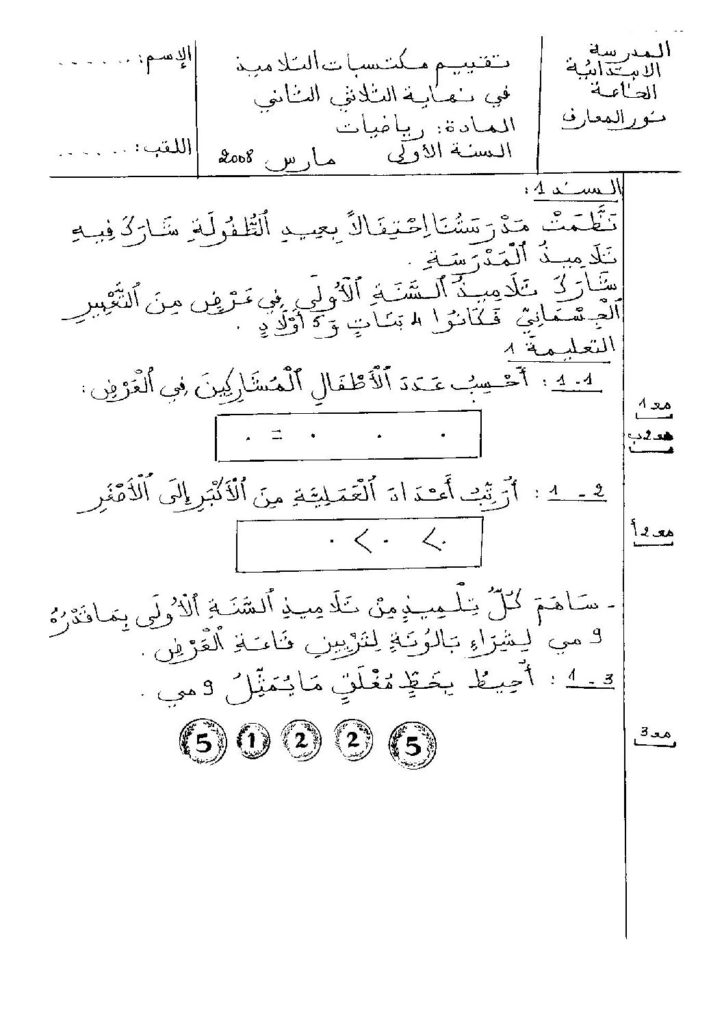 المدرسة
الابتدائية
الخاصة
نور المعارف
تقييم مكتسبات التلاميذ
في نهاية الثلاثي الثاني
المادة: رياضيات
السنة الأولى مارس 2008
الإسم: ......
اللقب: ......
السند 1:
نَظَّمَتْ مَدْرَسَتُنَا اِحْتِفَالاً بِعِيدِ الطُّفُولَةِ شَارَكَ فِيهِ
تَلَامِيذُ الْمَدْرَسَةِ.
شَارَكَ تَلَامِيذُ السَّنَةِ الْأُولَى فِي عَرْضٍ مِنَ التَّعْبِيرِ
الْجِسْمَانِيِّ فَكَانُوا 4 بَنَاتٍ وَ 5 أَوْلَادٍ.
التعليمة 1
1-1: أَحْسِبُ عَدَدَ الْأَطْفَالِ الْمُشَارِكِينَ فِي الْعَرْضِ:
مع 1
. . . = .
مع 2ب
1-2: أُرَتِّبُ أَعْدَادَ الْعَمَلِيَّةِ مِنَ الْأَكْبَرِ إِلَى الْأَصْغَرِ
. > . > .
مع 2أ
- سَاهَمَ كُلُّ تِلْمِيذٍ مِنْ تَلَامِيذِ السَّنَةِ الْأُولَى بِمَا قَدْرُهُ
9 مي لِشِرَاءِ بَالُونَةٍ لِتَزْيِينِ قَاعَةِ الْعَرْضِ.
1-3: أُحِيطُ بِخَطٍّ مُغْلَقٍ مَا يُمَثِّلُ 9 مي.
5 1 2 2 5
مع 3